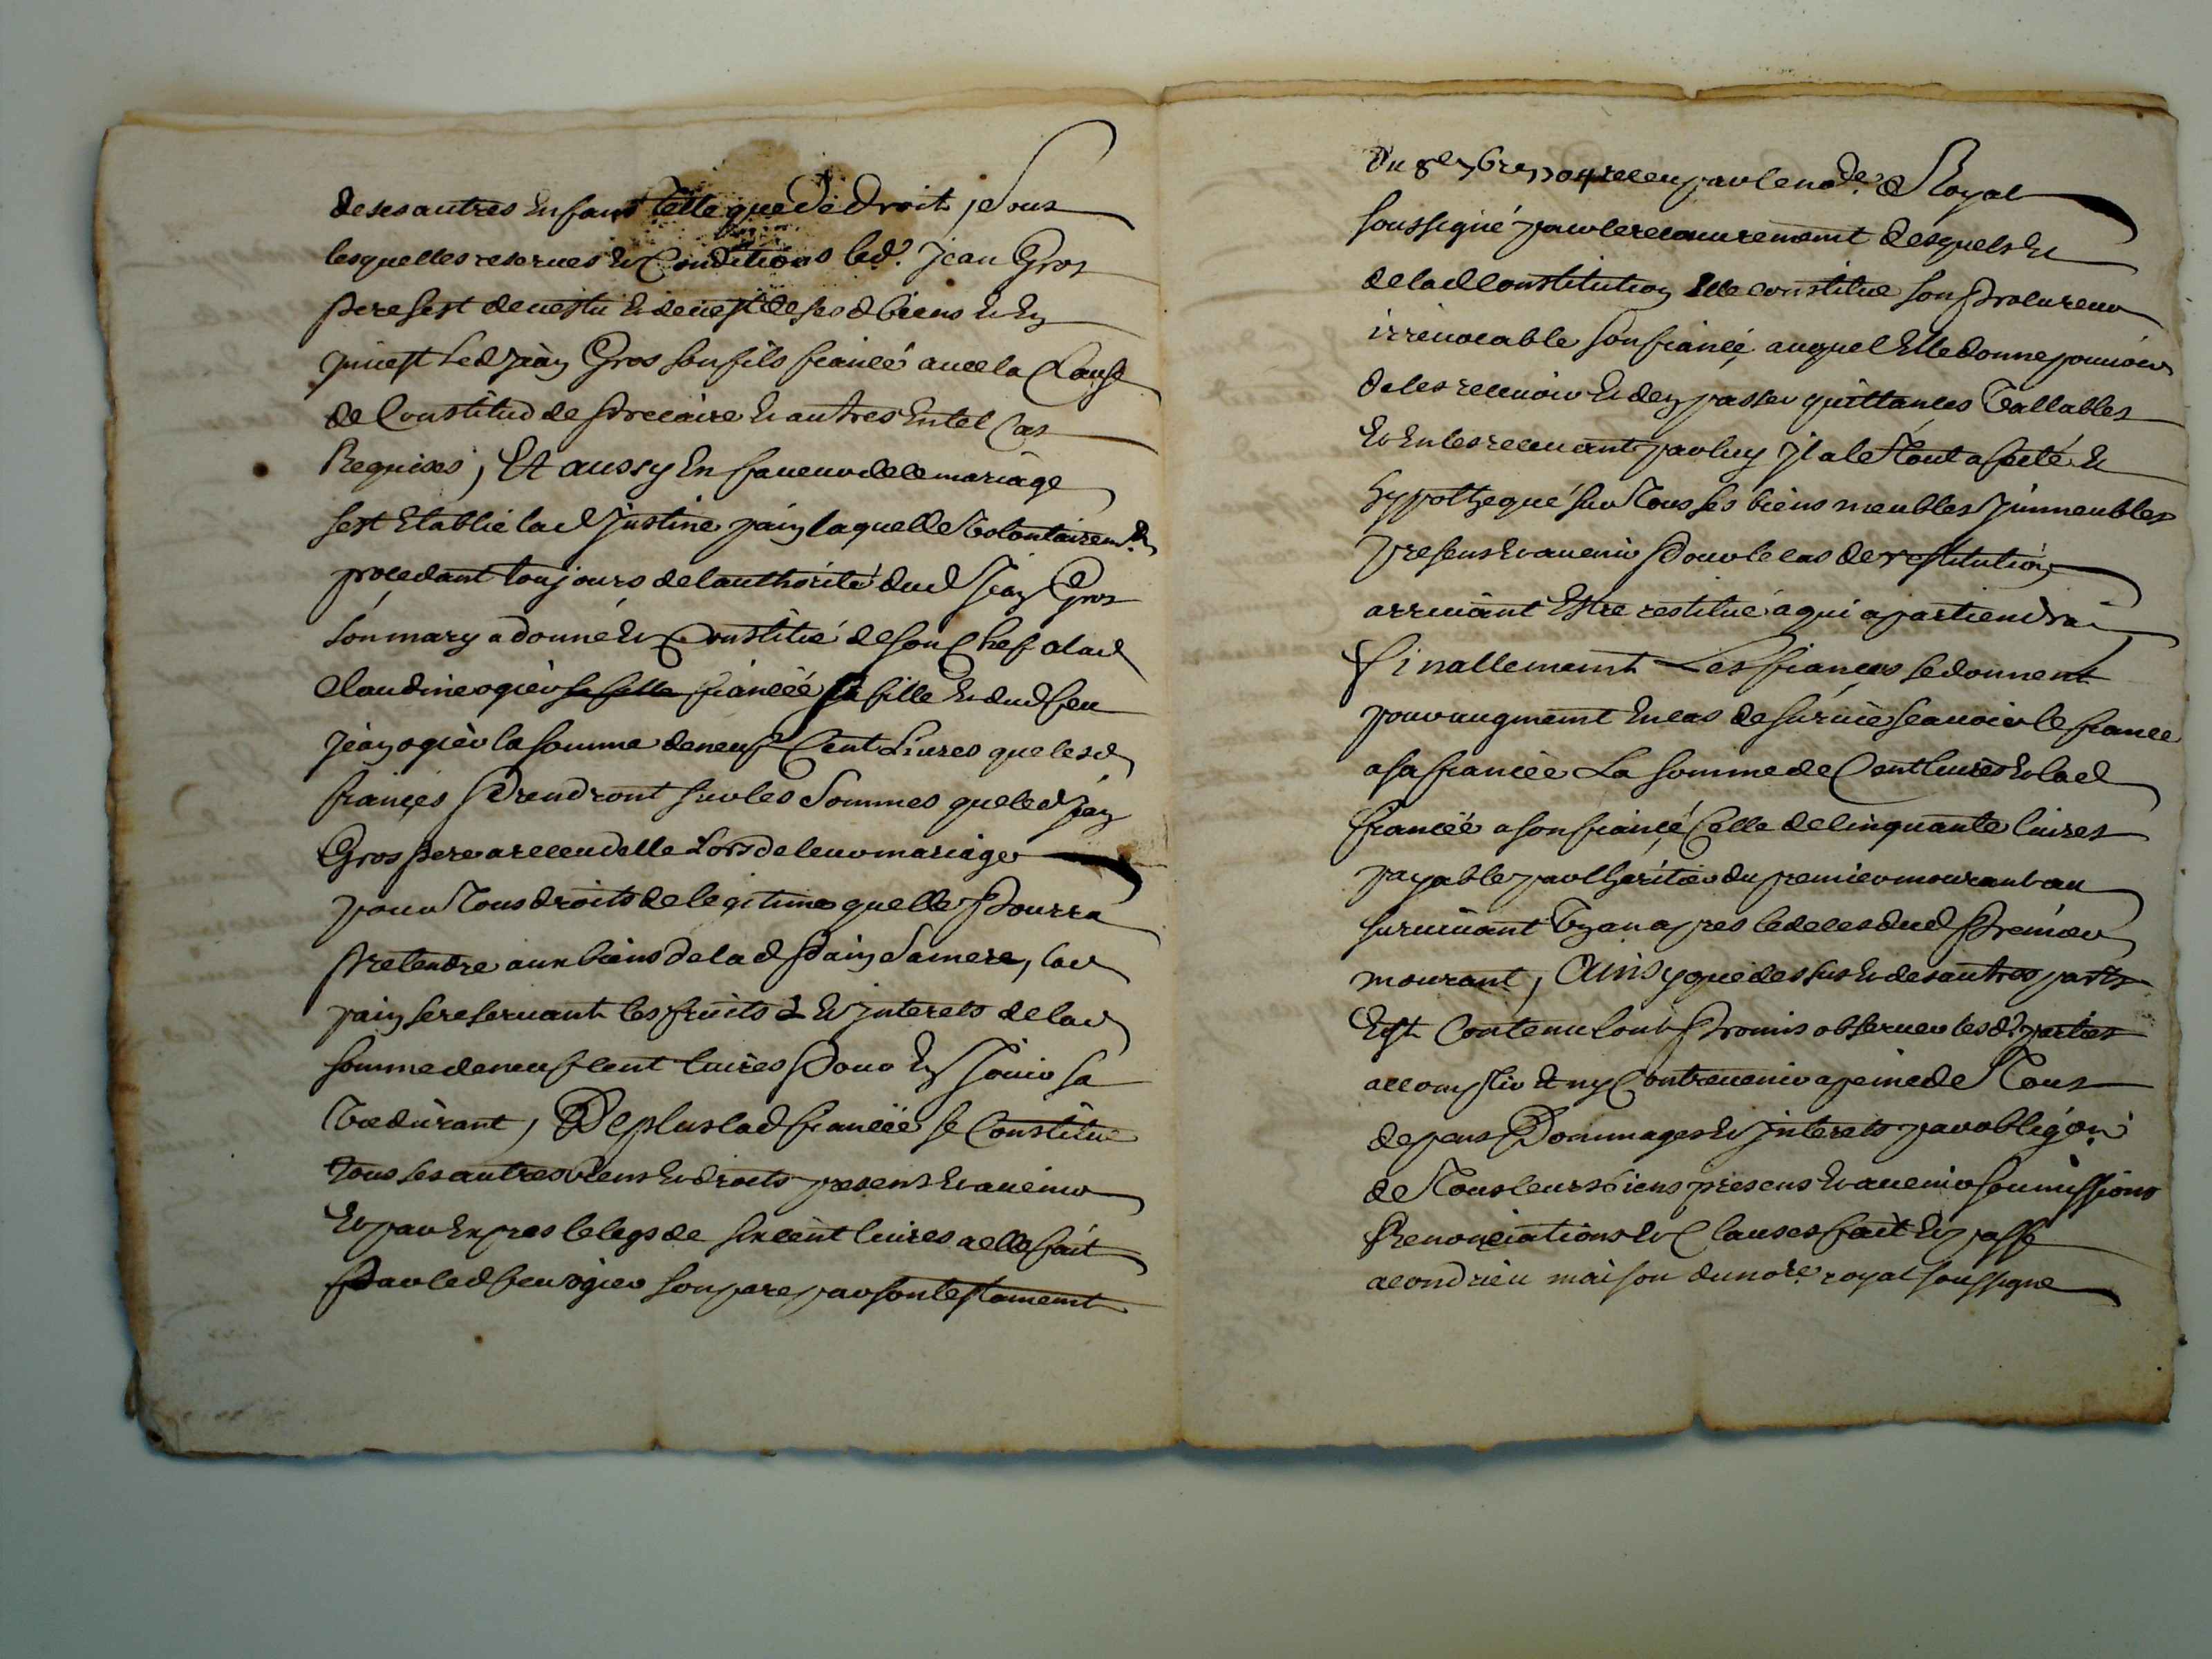 de ses autres Enfans telle que de droit, Sous
lesquelles reserues Et Conditions led. Jean Gros
Pere sest deuestu Et deuest de ses d biens Et En
jnuest Led Jean Gros son fils fiancé auec la Clause
de Constitud de Precaire Et autres En tel Cas
Requises, Et aussy En faueur de ce mariage
sest Etablie lad Justine pain laquelle Volontairemt
procedant toujours de lauthorité dud Jean Gros
son mary a donné Et Constitué de son Chef a lad
Claudine ogier sa fille fiancéé sa fille Et dud feu
Jean ogier la somme de neuf Cent Liures que lesd
fiances Prendront sur les Sommes que led Jean
Gros Pere a receu delle Lors de leur mariage
pour Tous droits de legitime quelle Pourra
Pretendre aux biens de lad Pain Sa mere, lad
pain se reseruant les fruits & Et jnterets de lad
somme de neuf cent liures Pour En Jouir sa
Vie durant, De plus lad fiancéé se Constitue
tous ses autres biens Et droits presens Et auenir
Et par Expres le legs de six cent liures a elle fait
Par led feu ogier son pere par son testament
du 8embre 1704 receu par le no.re Royal
soussigné pour le recouurement desquels Et
de lad Constitution Elle constitue son Procureur
irreuocable son fiancé auquel Elle donne pouuoir
de les receuoir Et den passer quittances Vallables
Et En les receuant par luy Il a le Tout afecté Et
hypothequé sur Tous ses biens meubles Jmmeubles
presens Et auenir Pour le cas de restitution
arriuant Estre restitué a qui apartiendra
finallement Les fiances se donnent
pour augment En cas de suruie scauoir le fiancé
a sa fiancéé La somme de Cent liures Et lad
fiancéé a son fiancé Celle de Cinquante liures
payable par lheritier du premier mourant au
suruiuant Vn an apres le deces dud Premier
mourant, Ainsy que dessus Et des autres parts
Est Contenu lont Promis obseruer lesd. parties
accomplir Et ny Contreuenir a peine de Tous
depens Dommages Et jnterets par obligaon
de Tous leurs biens presens Et auenir soumissions
Renonciations Et Clauses fait Et passé
a condrieu maison du nore royal soussigne